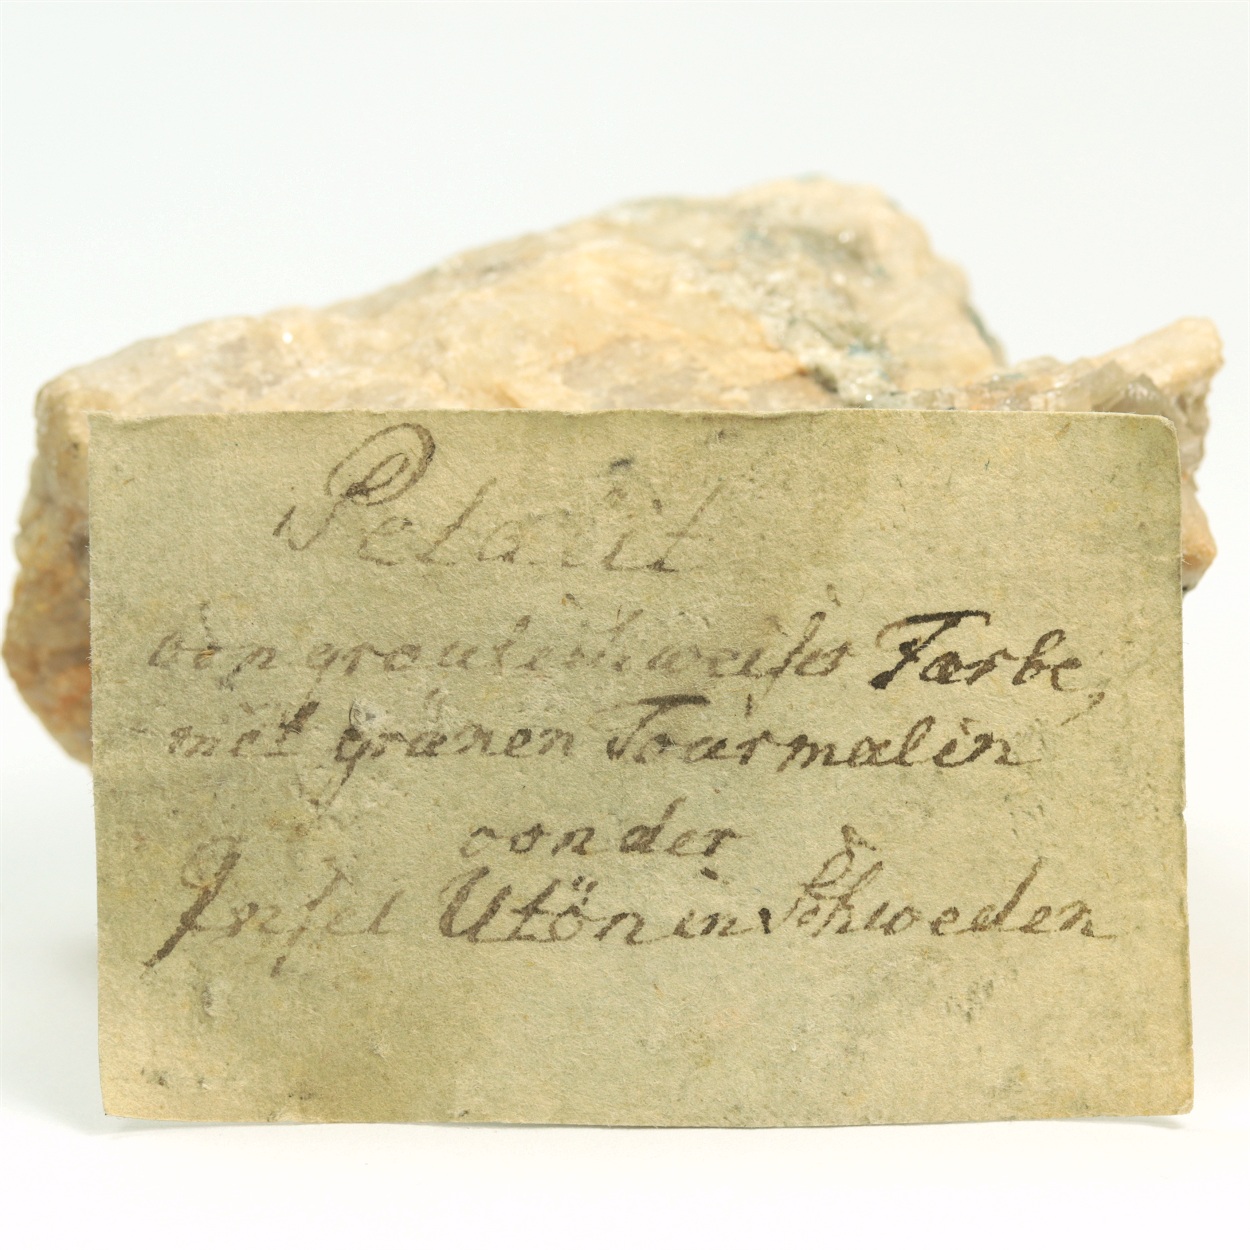 Petalit
von graulichweißer Farbe,
mit grünen Tourmalin
von der
Insel Utön in Schweden